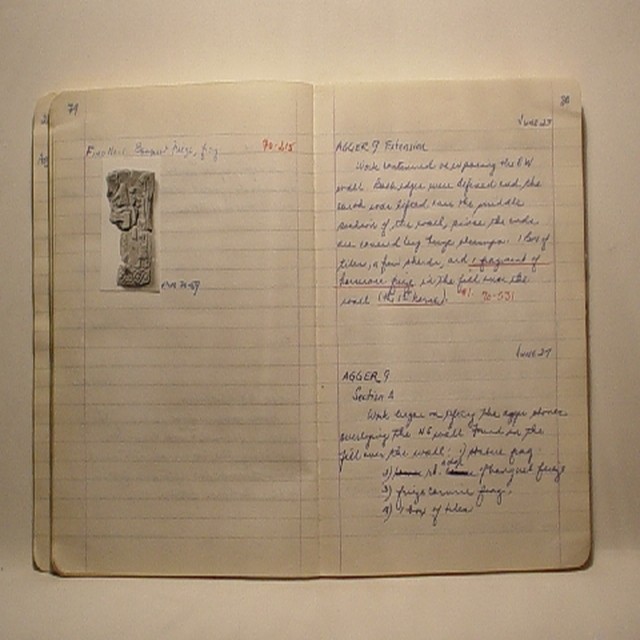 79
Find No. 1 Banquet frieze, frag 70-215
80
June 23
AGGER 9 Extension
Work continued on exposing the EW
wall. Both edges were defined and the
earth was lifted over the middle
section of the wall, since the ends
are covered by large stumps. 1 box of
tiles, a few sherds, and 1 fragment of
frieze in the fill near the
wall 70-531
June 27
AGGER 9
Section A
Work began on the agger stones
overlying the NE wall. Found in the
fill over the wall: 1) statue frag
2) of banquet frieze
3) frieze frag.
4) 1 box of tiles